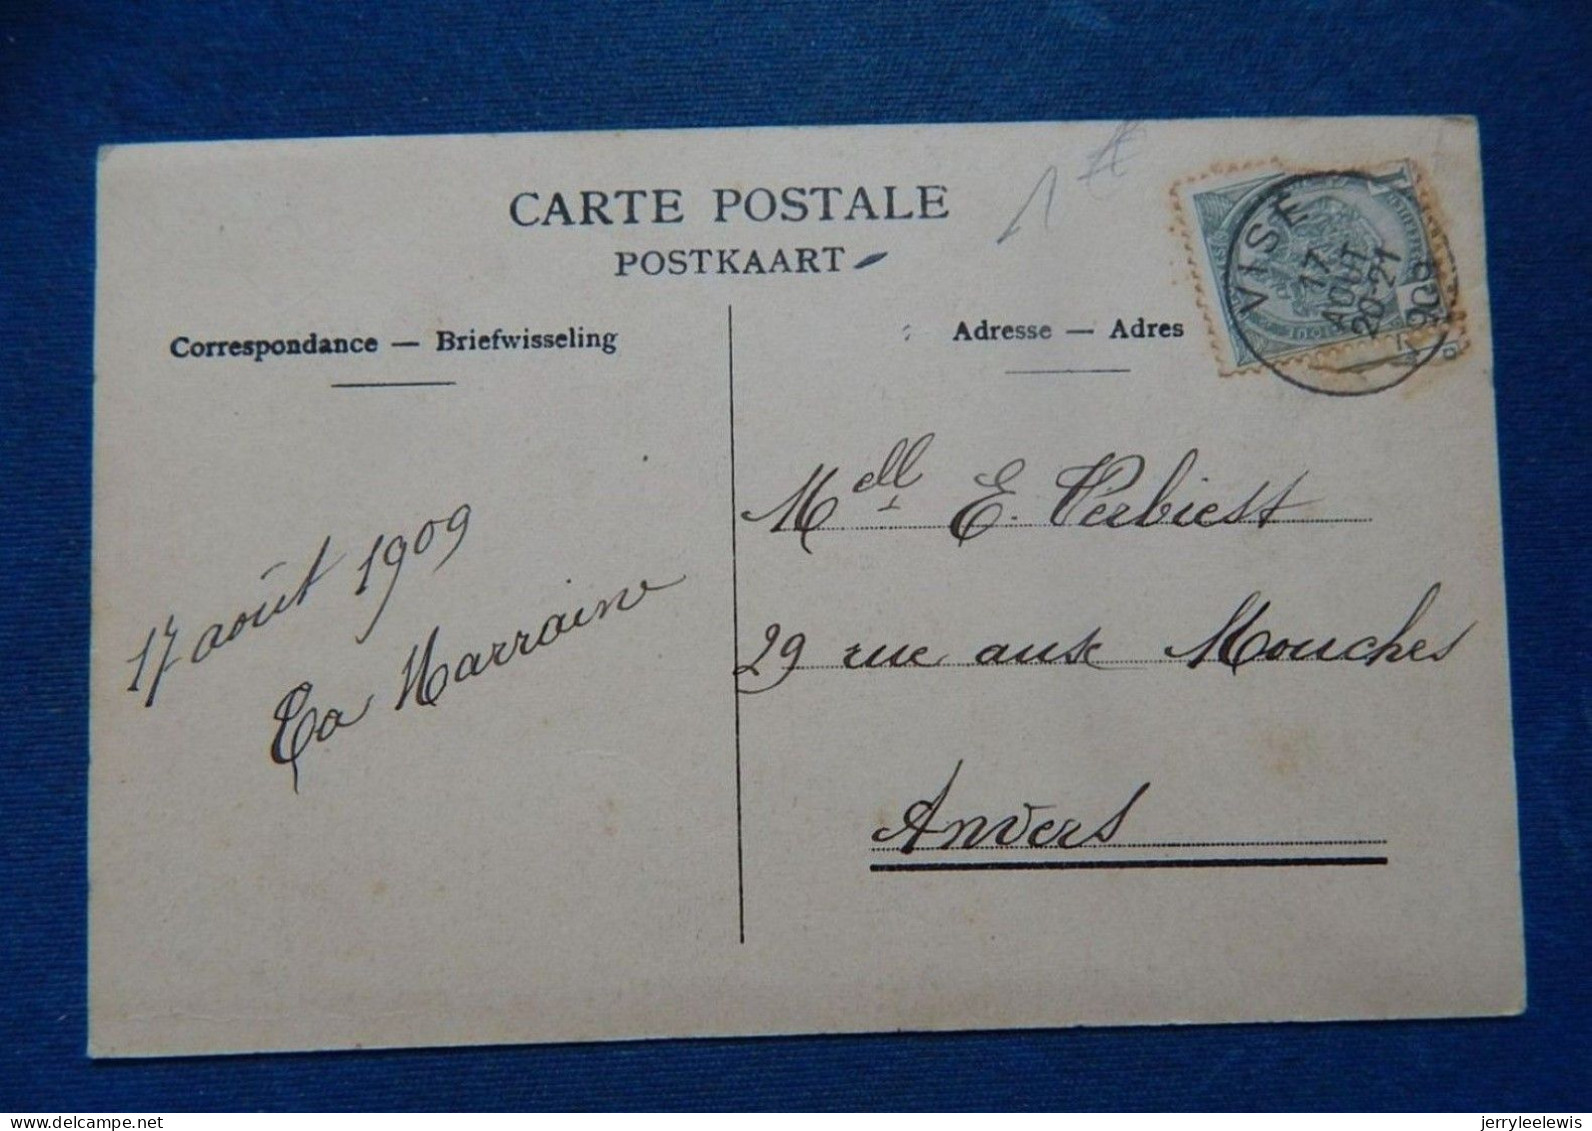 CARTE POSTALE
POSTKAART
1 €
Correspondance — Briefwisseling
Adresse — Adres
VISE
17
AOUT
20-21
1909
17 août 1909
Ta Marraine
Mell E. Verbiest
29 rue aux Mouches
Anvers
www.delcampe.net
jerryleelewis